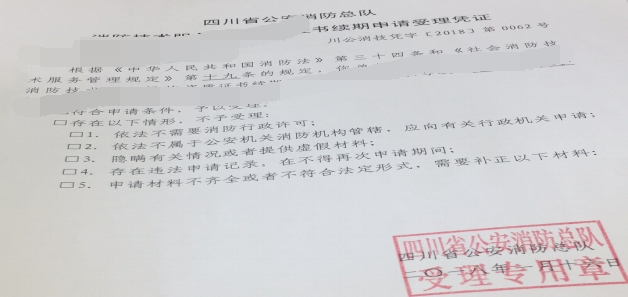 四川省公安消防总队
书续期申请受理凭证
川公消技凭字〔2018〕第0062号
根据《中华人民共和国消防法》第三十四条和《社会消防技
术服务管理规定》第十九条的规定，
消防技
符合申请条件，予以受理。
□存在以下情形，不予受理：
□1. 依法不需要消防行政许可；
□2. 依法不属于公安机关消防机构管辖，应向有关行政机关申请；
□3. 隐瞒有关情况或者提供虚假材料；
□4. 存在违法申请记录，在不得再次申请期间；
□5. 申请材料不齐全或者不符合法定形式，需要补正以下材料：
四川省公安消防总队
二〇一八年一月十六日
四川省公安消防总队
受理专用章